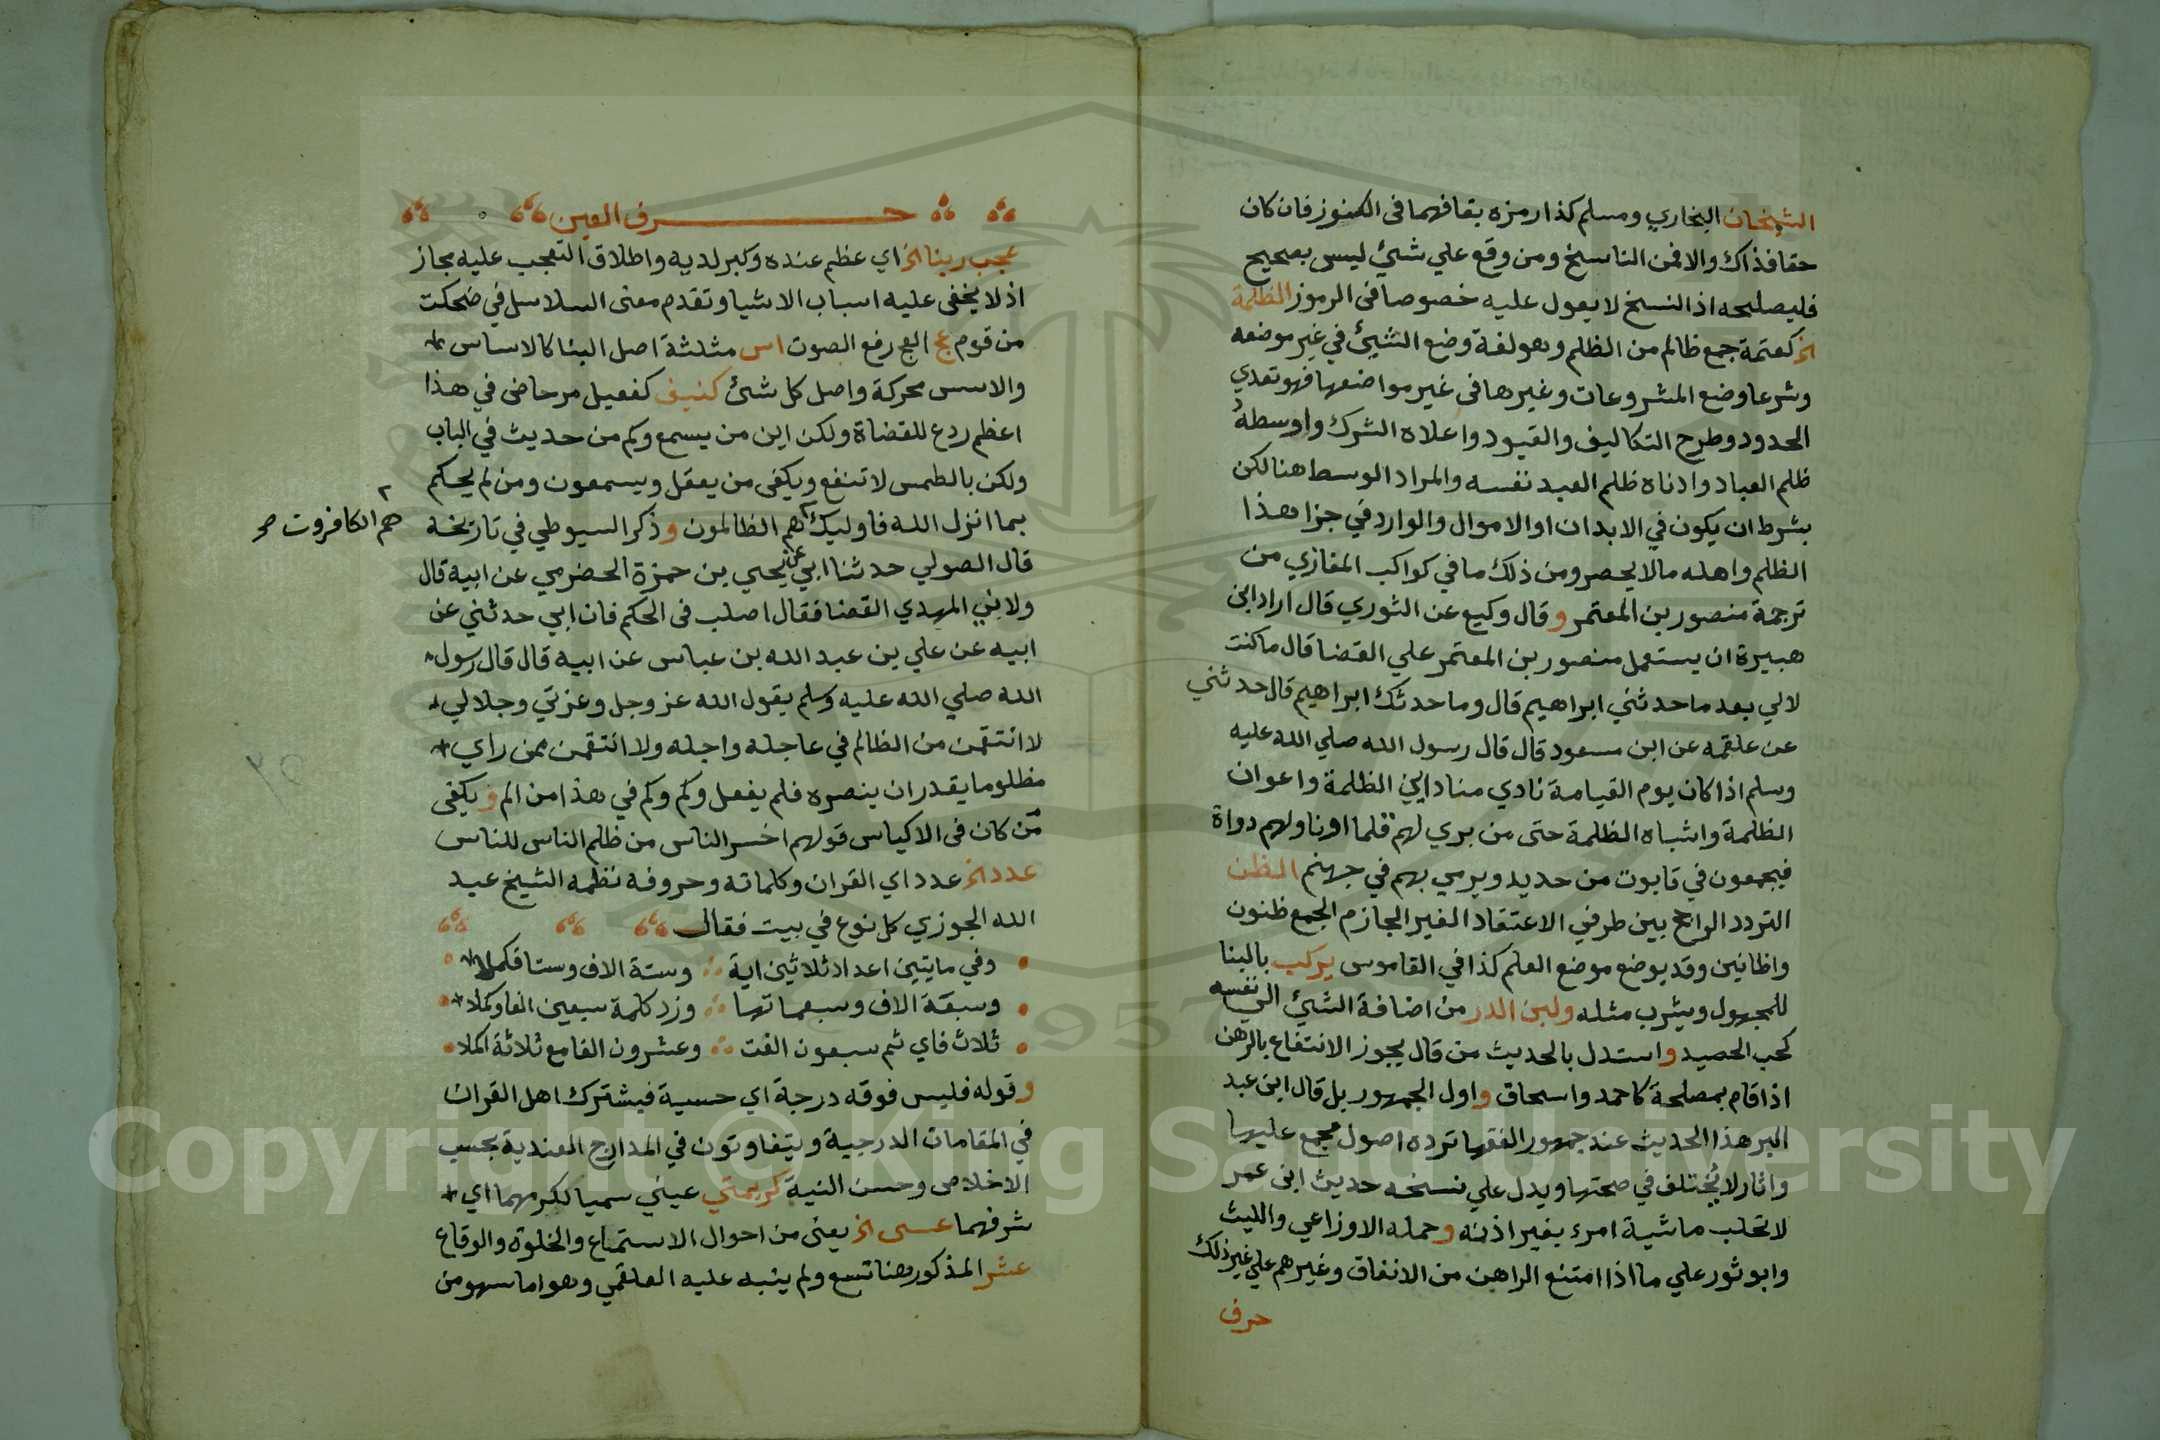 الشيخان البخاري ومسلم كذا رمزه بقافهما في الكنوز فان كان
حقا فذاك والا فمن الناسخ ومن وقع علي شئ ليس بصحيح
فليصلحه اذ النسخ لا يعول عليه خصوصا في الرموز الظلمة
الخ كعتمة جمع ظالم من الظلم وهو لغة وضع الشئ في غير موضعه
وشرعا وضع المشروعات وغيرها في غير مواضعها فهو تعدي
الحدود وطرح التكاليف والقيود واعلاه الشرك واوسطه
ظلم العباد وادناه ظلم العبد نفسه والمراد الوسط هنا لكن
بشرط ان يكون في الابدان او الاموال والوارد في جزا هذا
الظلم واهله ما لا يحصر ومن ذلك ما في كواكب المغازي من
ترجمة منصور بن المعتمر وقال وكيع عن الثوري قال اراد ابن
هبيرة ان يستعمل منصور بن المعتمر علي القضا قال ما كنت
لالي بعد ما حدثني ابراهيم قال وما حدثك ابراهيم قال حدثني
عن علقمه عن ابن مسعود قال قال رسول الله صلي الله عليه
وسلم اذا كان يوم القيامة نادي مناد اين الظلمة واعوان
الظلمة واشباه الظلمة حتى من بري لهم قلما او ناولهم دواة
فيجمعون في تابوت من حديد ويرمي بهم في جهنم الظن
التردد الراجح بين طرفي الاعتقاد الغير الجازم الجمع ظنون
واظانين وقد يوضع موضع العلم كذا في القاموس يركب بالبنا
للمجهول ويشرب مثله ولبن الدر من اضافة الشئ الي نفسه
كحب الحصيد واستدل بالحديث من قال يجوز الانتفاع بالرهن
اذا قام بمصلحة كاحمد واسحاق واول الجمهور بل قال ابن عبد
البر هذا الحديث عند جمهور الفقها ترده اصول مجمع عليها
واثار لا يختلف في صحتها ويدل علي نسخه حديث ابن عمر
لا تحلب ماشية امرء بغير اذنه وحمله الاوزاعي والليث
وابو ثور علي ما اذا امتنع الراهن من الانفاق وغيرهم علي غير ذلك
حرف
حرف العين
عجب ربنا الخ اي عظم عنده وكبر لديه واطلاق التعجب عليه مجاز
اذ لا يخفى عليه اسباب الاشيا وتقدم معنى السلاسل في ضحكت
من قوم عج العج رفع الصوت اس مثلثة اصل البنا كالاساس
والاسس محركة واصل كل شئ كنيف كفعيل مرحاض في هذا
اعظم ردع للقضاة ولكن اين من يسمع وكم من حديث في الباب
ولكن بالطمس لا تنفع ويكفي من يعقل ويسمعون ومن لم يحكم
بما انزل الله فاوليك هم الظالمون وذكر السيوطي في تاريخه
هم الكافرون صح
قال الصولي حدثنا ابي عن يحيي بن حمزة الحضرمي عن ابيه قال
ولاني المهدي القضا فقال اصلب في الحكم فان ابي حدثني عن
ابيه عن علي بن عبد الله بن عباس عن ابيه قال قال رسول
الله صلي الله عليه وسلم يقول الله عز وجل وعزتي وجلالي
لا انتقمن من الظالم في عاجله واجله ولا انتقمن ممن راي
مظلوما يقدر ان ينصره فلم يفعل وكم وكم في هذا من الم ويكفى
من كان في الاكياس قولهم اخسر الناس من ظلم الناس للناس
عدد الخ عدد اي القران وكلماته وحروفه نظمه الشيخ عبد
الله الجوزي كل نوع في بيت فقال
وفي مايتين اعداد ثلاثين اية وستة الاف وستا فكملا
وسبعة الاف وسبعماتها وزد كلمة سبعين الفا وكملا
ثلاث فاي ثم سبعون الفت وعشرون الفا مع ثلاثة اكملا
وقوله فليس فوقه درجة اي حسية فيشترك اهل القران
في المقامات الدرجية ويتفاوتون في المدارج العندية بحسب
الاخلاص وحسن النية كريمتي عيني سميا لكرمهما اي
شرفهما عسى الخ يعنى من احوال الاستمتاع والخلوة والوقاع
عشر المذكور هنا تسع ولم ينبه عليه العلقمي وهو اما سهو من
Copyright © King Saud University
1957